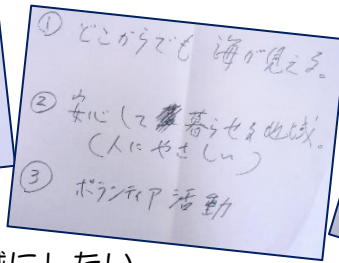 ① どこからでも 海が見える。
② 安心して 暮らせる地域。
(人にやさしい)
③ ボランティア活動
にしたい